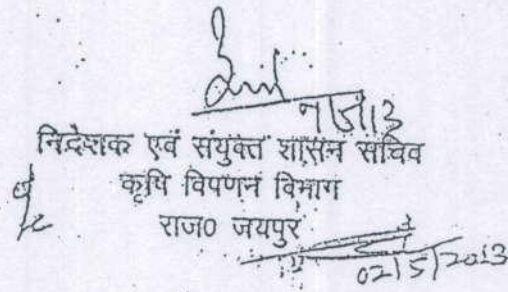 निदेशक एवं संयुक्त शासन सचिव
कृषि विपणन विभाग
राज0 जयपुर
02/5/2013